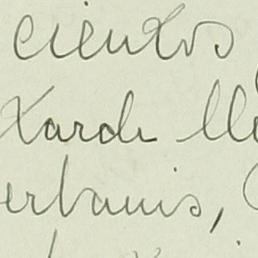 cientos
tarde lle
erbanis,